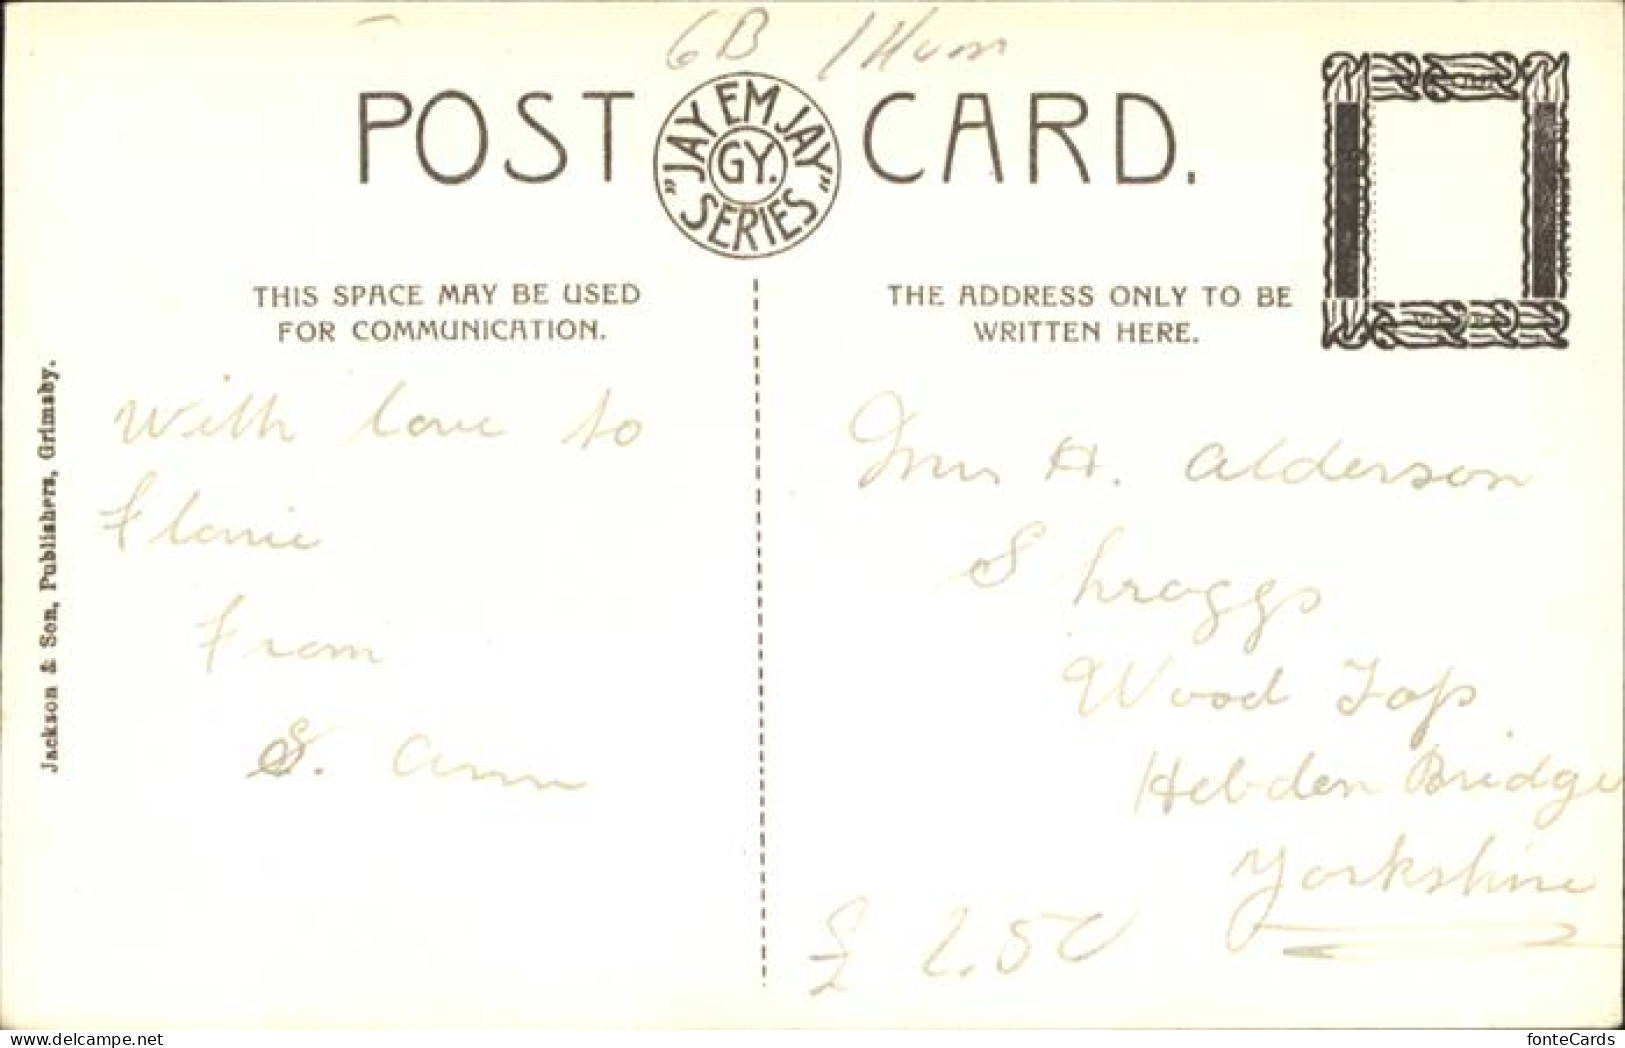 6B 1 Hum
POST CARD.
"JAY EM JAY" SERIES
GY.
THIS SPACE MAY BE USED
FOR COMMUNICATION.
THE ADDRESS ONLY TO BE
WRITTEN HERE.
Jackson & Son, Publishers, Grimsby.
With love to
Florrie
From
S. Ann
Mrs H. Alderson
Shroggs
Wood Top
Hebden Bridge
Yorkshire
£ 2.50
fonteCards